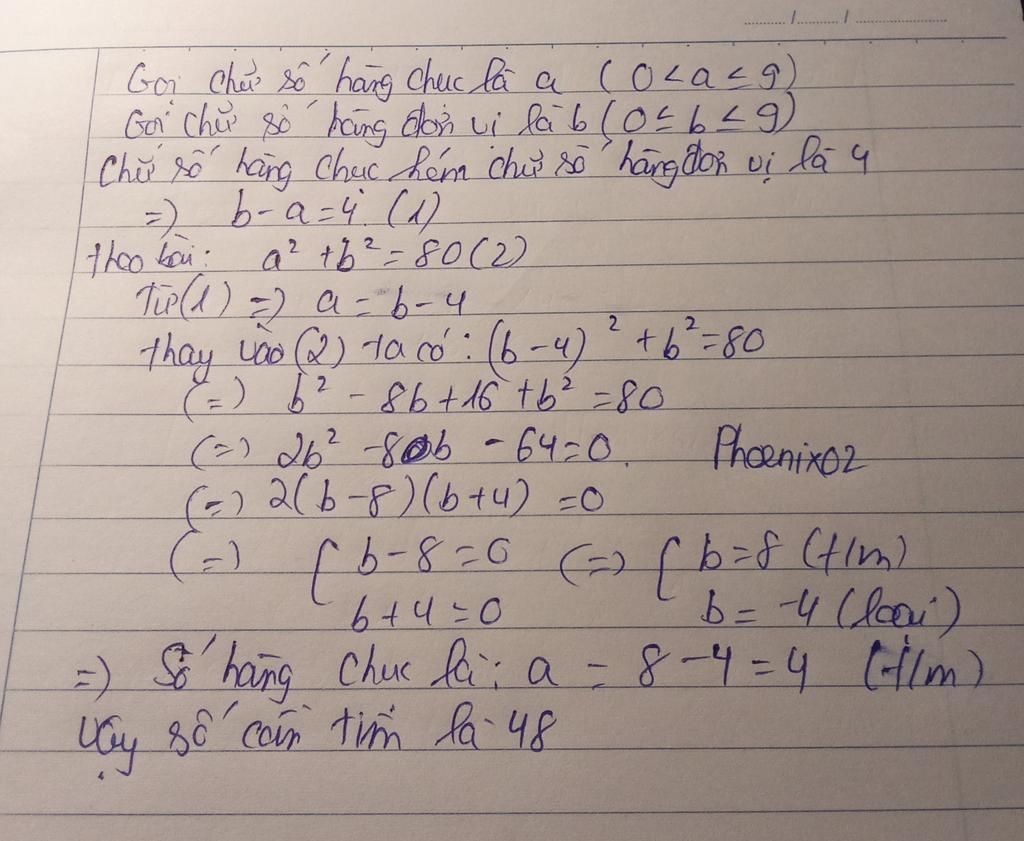 Gọi chữ số hàng chục là a (0<a≤9)
Gọi chữ số hàng đơn vị là b (0≤b≤9)
Chữ số hàng chục kém chữ số hàng đơn vị là 4
=) b-a=4. (1)
theo bài: a² +b² = 80 (2)
Từ (1) =) a = b-4
thay vào (2) ta có: (b-4)² + b² = 80
(=) b² - 8b + 16 + b² = 80
(=) 2b² - 8b - 64=0. Phoenix02
(=) 2(b-8)(b+4) =0
(=) [ b-8=0 (=) [ b=8 (t/m)
b+4=0 b= -4 (loại)
=) Số hàng chục là: a = 8-4=4 (t/m)
Vậy số cần tìm là 48